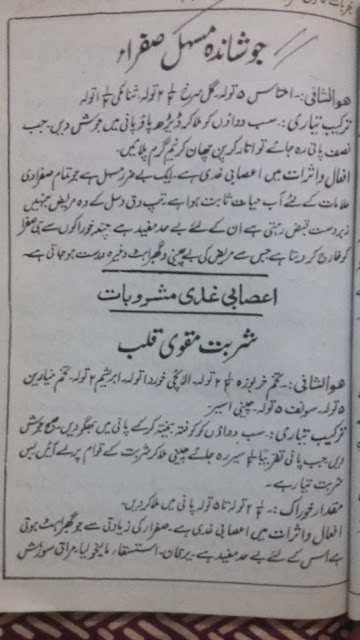 جوشاندہ مسہل صفراء
ھوالشافی:۔ املتاس ۵ تولہ۔ گل سرخ ½ ۲ تولہ۔ ثناء مکی ½ ۱ تولہ
ترکیب تیاری:۔ سب دواؤں کو ملا کر ڈیڑھ پاؤ پانی میں جوش دیں۔ جب
نصف پانی رہ جائے تو اتار کر پن چھان کر نیم گرم پلائیں۔
افعال و اثرات میں اعصابی غدی ہے۔ ایک بے ضرر مسہل ہے جو تمام صفراوی
علامات کے لئے آب حیات ثابت ہوا ہے۔ تپ دق و سل کے وہ مریض جنہیں
زبردست قبض رہتی ہے ان کے لئے بے حد مفید ہے چند خوراکوں سے ہی صفرا
کو خارج کر دیتا ہے جس سے مریض کی بے چینی و گھبراہٹ وغیرہ درست ہو جاتی ہے۔
اعصابی غدی مشروبات
شربت مقوی قلب
ھوالشافی:۔ تخم خربوزہ ½ ۲ تولہ۔ الائچی خورد ۱ تولہ۔ ابریشم ۲ تولہ۔ تخم خیارین
۵ تولہ۔ سونف ۵ تولہ۔ چینی ۱ سیر
ترکیب تیاری:۔ سب دواؤں کو کوفتہ بیختہ کر کے پانی میں بھگو دیں۔ صبح جوش
دیں جب پانی تقریباً ½ سیر رہ جائے چینی ملا کر شربت کے قوام پر لے آئیں بس
شربت تیار ہے۔
مقدار خوراک:۔ ½ ۲ تولہ تا ۵ تولہ پانی میں ملا کر دیں۔
افعال و اثرات میں اعصابی غدی ہے۔ صفرا کی زیادتی سے جو گھبراہٹ ہوتی
ہے اس کے لئے بے حد مفید ہے۔ یرقان۔ استسقاء۔ مالیخولیا۔ مراق سوزش